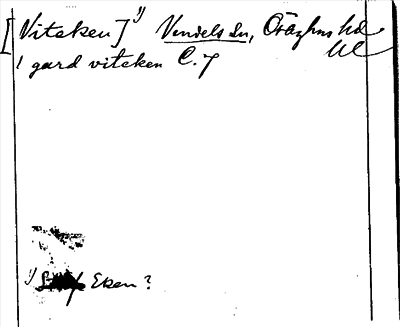 [Viteken] 1) Vendels sn, Örbyhus hd
Ul
1 gard viteken C. 7
1) Eken?